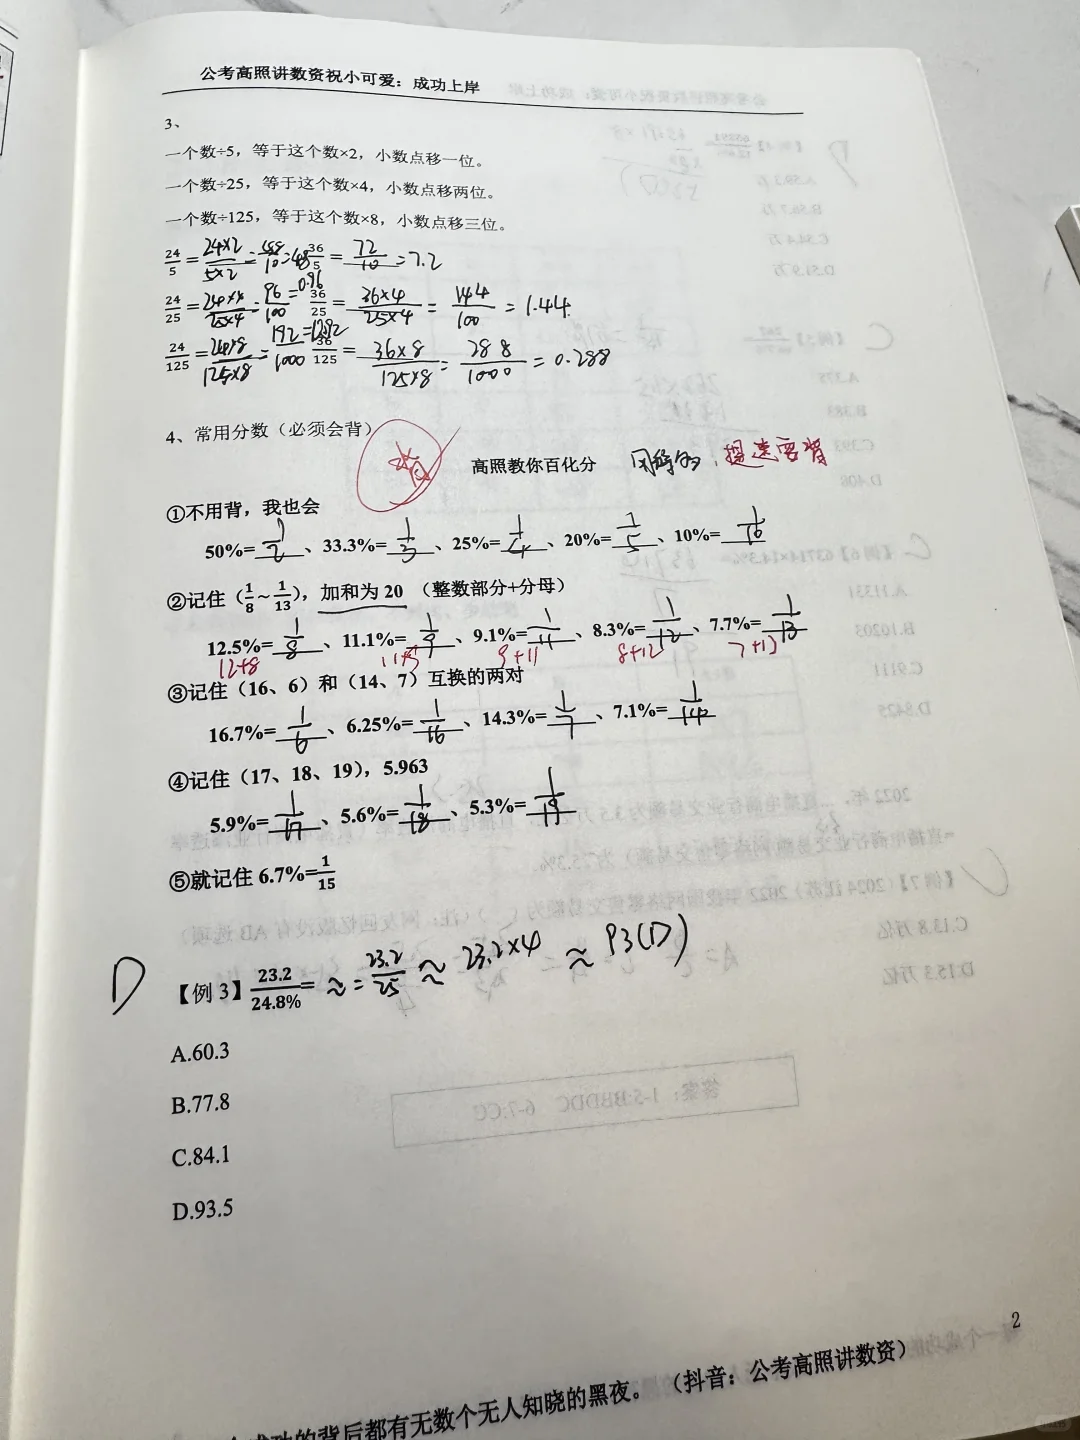 公考高照讲数资祝小可爱：成功上岸
3、
一个数÷5，等于这个数×2，小数点移一位。
一个数÷25，等于这个数×4，小数点移两位。
一个数÷125，等于这个数×8，小数点移三位。
24/5 = 24×2/5×2 = 48/10 = 4.8 36/5 = 72/10 = 7.2
24/25 = 24×4/25×4 = 96/100 = 0.96 36/25 = 36×4/25×4 = 144/100 = 1.44
24/125 = 24×8/125×8 = 192/1000 = 36/125 = 36×8/125×8 = 288/1000 = 0.288
4、常用分数（必须会背）
高照教你百化分 提速要背
①不用背，我也会
50%=1/2、33.3%=1/3、25%=1/4、20%=1/5、10%=1/10
②记住（1/8~1/13），加和为 20 （整数部分+分母）
12.5%=1/8、11.1%=1/9、9.1%=1/11、8.3%=1/12、7.7%=1/13
12+8 11+9 9+11 8+12 7+13
③记住（16、6）和（14、7）互换的两对
16.7%=1/6、6.25%=1/16、14.3%=1/7、7.1%=1/14
④记住（17、18、19），5.963
5.9%=1/17、5.6%=1/18、5.3%=1/19
⑤就记住 6.7%=1/15
D 【例 3】23.2/24.8%= ≈ = 23.2/25 ≈ 23.2×4 ≈ 93(D)
A.60.3
B.77.8
C.84.1
D.93.5
2
成功的背后都有无数个无人知晓的黑夜。（抖音：公考高照讲数资）